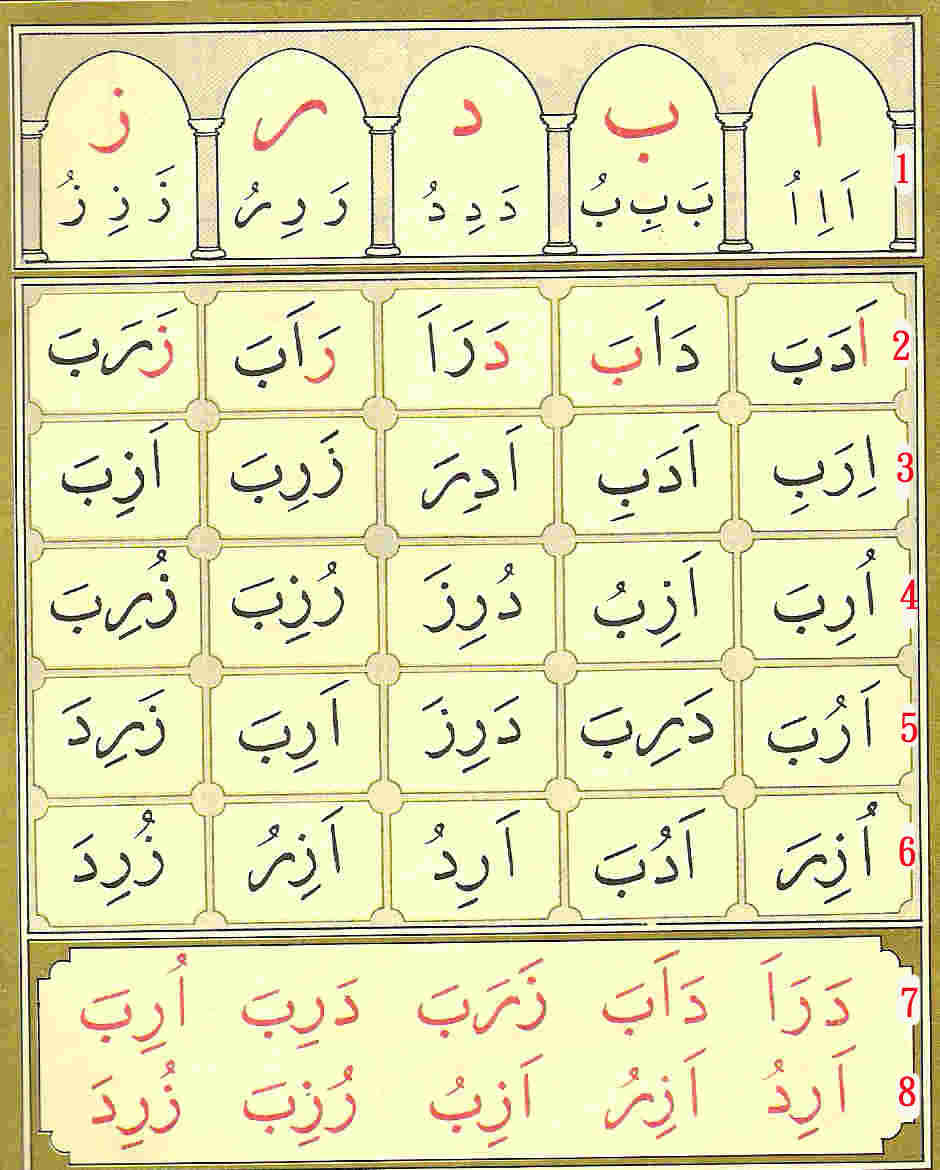 ا ب د ر ز
1 اَ اِ اُ بَ بِ بُ دَ دِ دُ رَ رِ رُ زَ زِ زُ
2 اَدَبَ دَاَبَ دَرَاَ رَاَبَ زَرَبَ
3 اِرَبِ اَدَبِ اَدِرَ زَرِبَ اَزِبَ
4 اُرِبَ اَزِبُ دُرِزَ رُزِبَ زُرِبَ
5 اَرُبَ دَرِبَ دَرِزَ اَرِبَ زَرِدَ
6 اُزِرَ اَدُبَ اَرِدُ اَزِرُ زُرِدَ
7 دَرَاَ دَاَبَ زَرَبَ دَرِبَ اُرِبَ
8 اَرِدُ اَزِرُ اَزِبُ رُزِبَ زُرِدَ